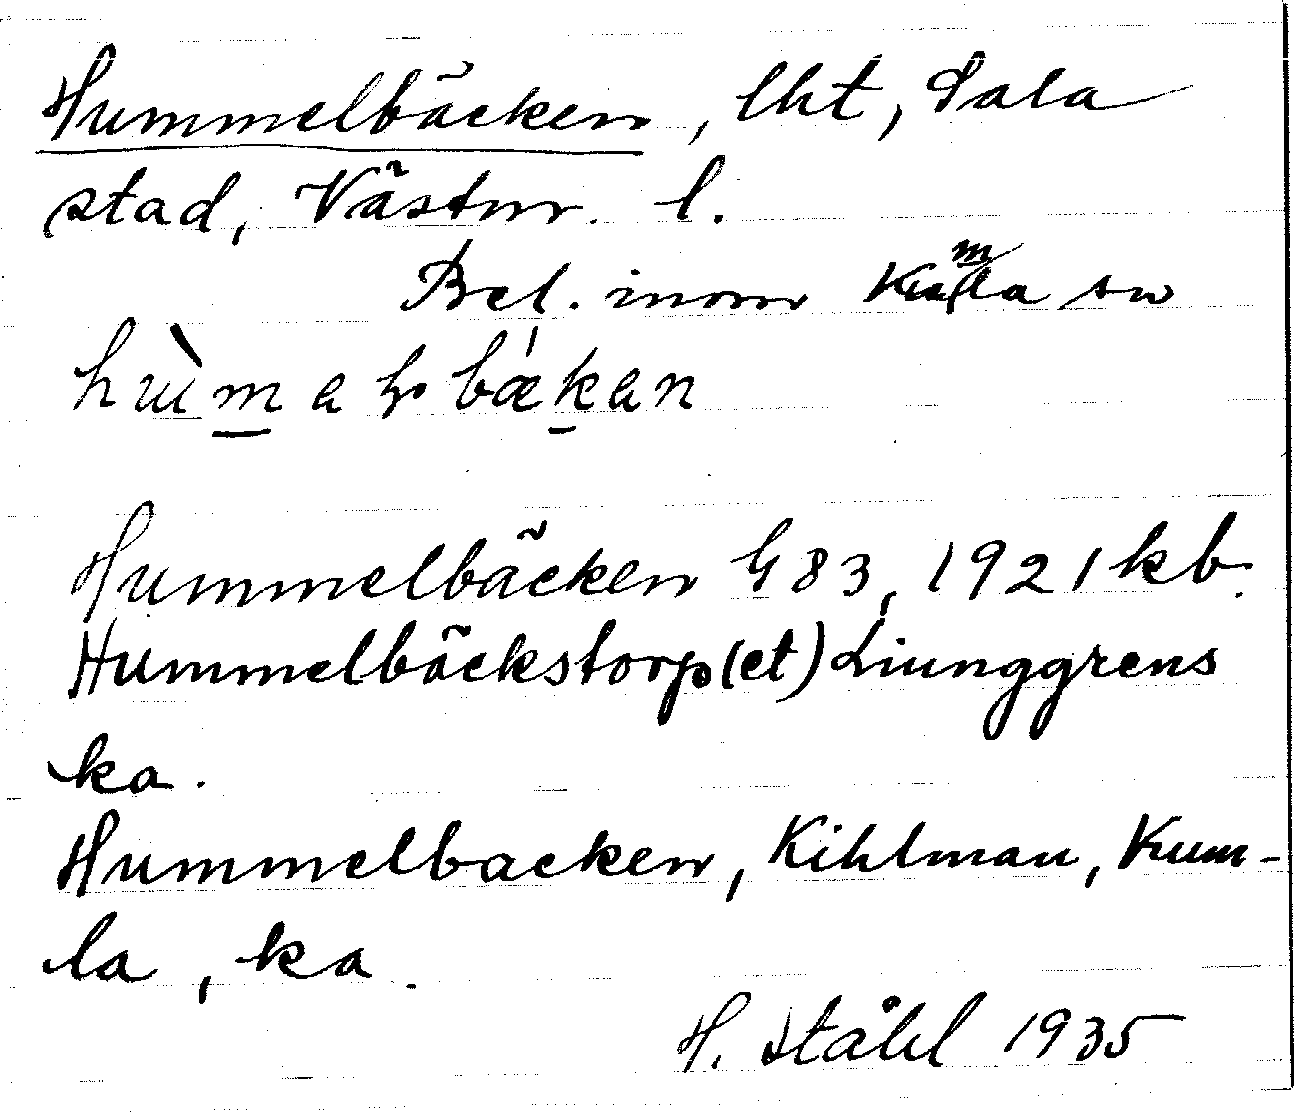 Hummelbäcken, lht, Sala
stad, Västm. l.
Bel. inom Kumla sn
hùmalbækan
Hummelbäcken G 83, 1921 kb.
Hummelbäckstorp(et) Liunggrens
ka.
Hummelbacken, Kihlman, Kum-
la, ka.
H. Ståhl 1935